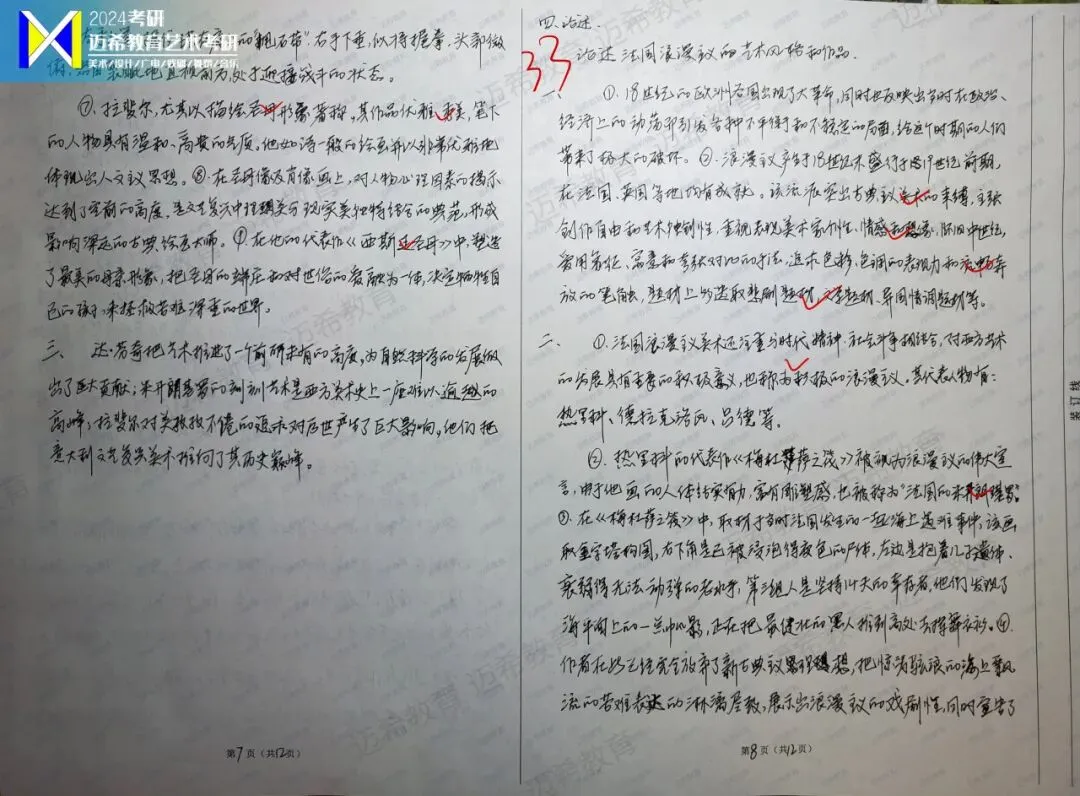 2024考研
迈希教育艺术考研
美术/设计/广电/戏剧/舞蹈/音乐
的"甩石带"右手下垂,似将握拳,头部微
俯,直视前方,处于迎接战斗的状态。
⑦、拉斐尔,尤其以描绘圣母形象著称,其作品优雅、秀美,笔下
的人物具有温和、高贵的气质。他如诗一般的绘画并以非常优雅地
体现出人文主义思想。⑧在圣母像及肖像画上,对人物心理因素的揭示
达到了空前的高度,是文艺复兴中理想美与现实美独特结合的典范,形成
影响深远的古典绘画大师。⑨在他的代表作《西斯廷圣母》中,塑造
了最美的母亲形象,把圣母的端庄和对世俗的爱融为一体,决定牺牲自
己的孩子,来拯救苦难深重的世界。
三、达·芬奇把艺术推进了个前所未有的高度,为自然科学的发展做
出了巨大贡献;米开朗基罗的雕刻艺术是西方美术史上一座难以逾越的
高峰;拉斐尔对美孜孜不倦的追求对后世产生了巨大影响,他们把
意大利文艺复兴美术推向了其历史巅峰。
第7页(共12页)
四、论述.
33
论述法国浪漫主义的艺术风格和作品.
一、①18世纪的欧州各国出现了大革命,同时也反映出当时在政治、
经济上的动荡引发各种不平衡和不稳定的局面,给这个时期的人们
带来了极大的破坏。②浪漫主义产生于18世纪末盛行于19世纪前期,
在法国、英国等地均有成就。该流派突出古典主义的束缚,主张
创作自由和艺术独创性,重视表现美术家个性、情感和想象,怀旧中世纪,
爱用象征、寓意和夸张对比的手法,追求色彩、色调的表现力和流畅奔
放的笔触,题材上多选取悲剧题材、文学题材、异国情调题材等。
二、①法国浪漫主义美术还注重与时代精神、社会斗争相结合,对西方艺术
的发展具有重要的积极意义,也称为积极的浪漫主义。其代表人物有:
热里科、德拉克洛瓦、吕德等。
②热里科的代表作《梅杜萨之筏》被视为浪漫主义的伟大宣
言,由于他画的人体结实有力,富有雕塑感,也被称为"法国的米开朗基罗"。
③在《梅杜萨之筏》中,取材于当时法国发生的一起海上遇难事件,该画
取金字塔构图,右下角是已被浸泡得变色的尸体,左边是抱着儿子遗体、
衰弱得无法动弹的老水手,第三组人是坚持14天的幸存者,他们发现了
海平面上的一点帆影,正在把最健壮的黑人推到高处去挥舞衣衫。④
作者在此已经完全放弃了新古典主义思想,把惊涛骇浪的海上飘
流的苦难表达的淋漓尽致,展示出浪漫主义的戏剧性,同时宣告了
第8页(共12页)
装订线